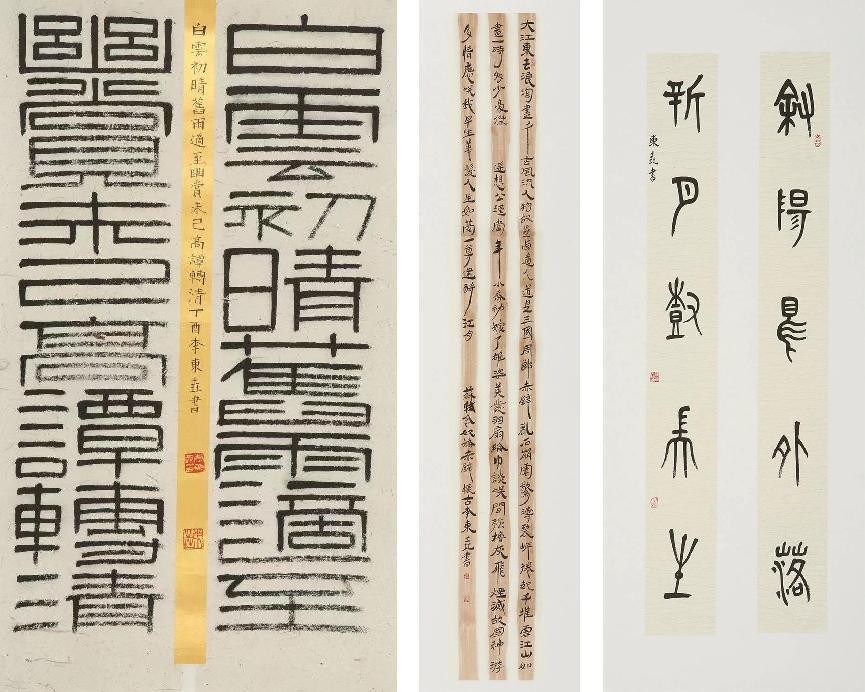 白雲初晴舊雨適至
白雲初晴舊雨適至幽賞未已高譚轉清丁酉李東書
幽賞未已高譚轉清
大江東去浪淘盡千古風流人物故壘西邊人道是三國周郎赤壁亂石崩雲驚濤裂岸捲起千堆雪江山如
畫一時多少豪傑遙想公瑾當年小喬初嫁了雄姿英發羽扇綸巾談笑間強櫓灰飛煙滅故國神游
多情應笑我早生華髮人生如夢一尊還酹江月蘇軾念奴嬌赤壁懷古李東書
斜陽鳥外落
新月樹耑生
東書